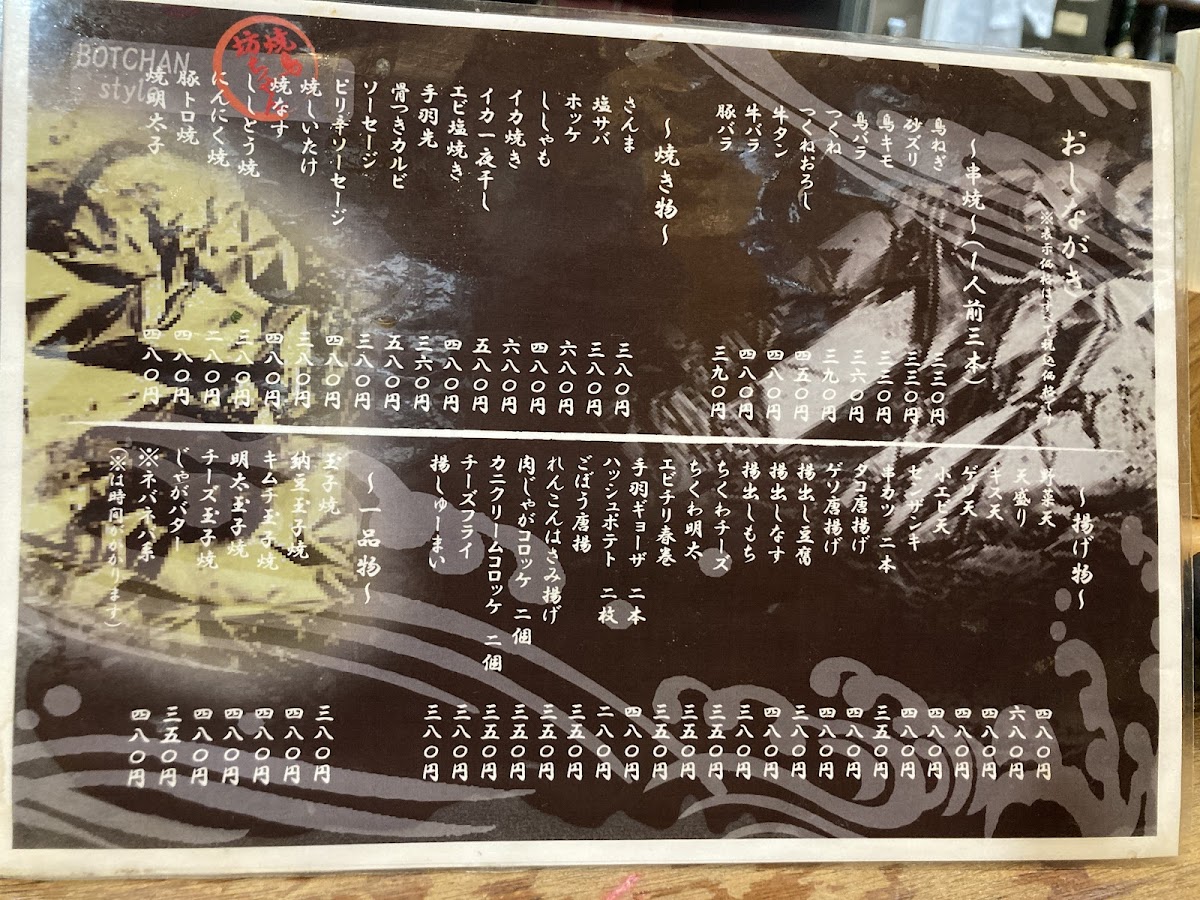 おしながき
※表示価格はすべて税込価格です
~串焼~(1人前三本)
鳥ねぎ 三三〇円
砂ズリ 三三〇円
鳥キモ 三三〇円
鳥バラ 三六〇円
つくね 三九〇円
つくねおろし 四五〇円
牛タン 四八〇円
牛バラ 四八〇円
豚バラ 三九〇円
~焼き物~
さんま 三八〇円
塩サバ 三八〇円
ホッケ 六八〇円
ししゃも 四八〇円
イカ焼き 六八〇円
イカ一夜干し 五八〇円
エビ塩焼き 四八〇円
手羽先 三六〇円
骨つきカルビ 五八〇円
ソーセージ 三八〇円
ピリ辛ソーセージ 四八〇円
焼しいたけ 三八〇円
焼なす 四八〇円
ししとう焼 三八〇円
にんにく焼 二八〇円
豚トロ焼 四八〇円
焼明太子 四八〇円
BOTCHAN
style
~揚げ物~
野菜天 四八〇円
天盛り 六八〇円
キス天 四八〇円
ゲソ天 四八〇円
小エビ天 四八〇円
センザンキ 四八〇円
串カツ 二本 三五〇円
タコ唐揚げ 四八〇円
ゲソ唐揚げ 四八〇円
揚出し豆腐 三八〇円
揚出しなす 四八〇円
揚出しもち 三八〇円
ちくわチーズ 三五〇円
ちくわ明太 三五〇円
エビチリ春巻 三五〇円
手羽ギョーザ 二本 四八〇円
ハッシュポテト 二枚 二八〇円
ごぼう唐揚 三五〇円
れんこんはさみ揚げ 三五〇円
肉じゃがコロッケ 二個 三五〇円
カニクリームコロッケ 二個 三五〇円
チーズフライ 三八〇円
揚しゅーまい 三八〇円
~一品物~
玉子焼 三八〇円
納豆玉子焼 四八〇円
キムチ玉子焼 四八〇円
明太玉子焼 四八〇円
チーズ玉子焼 四八〇円
じゃがバター 三五〇円
※ネバネバ系 四八〇円
(※は時間かかります)